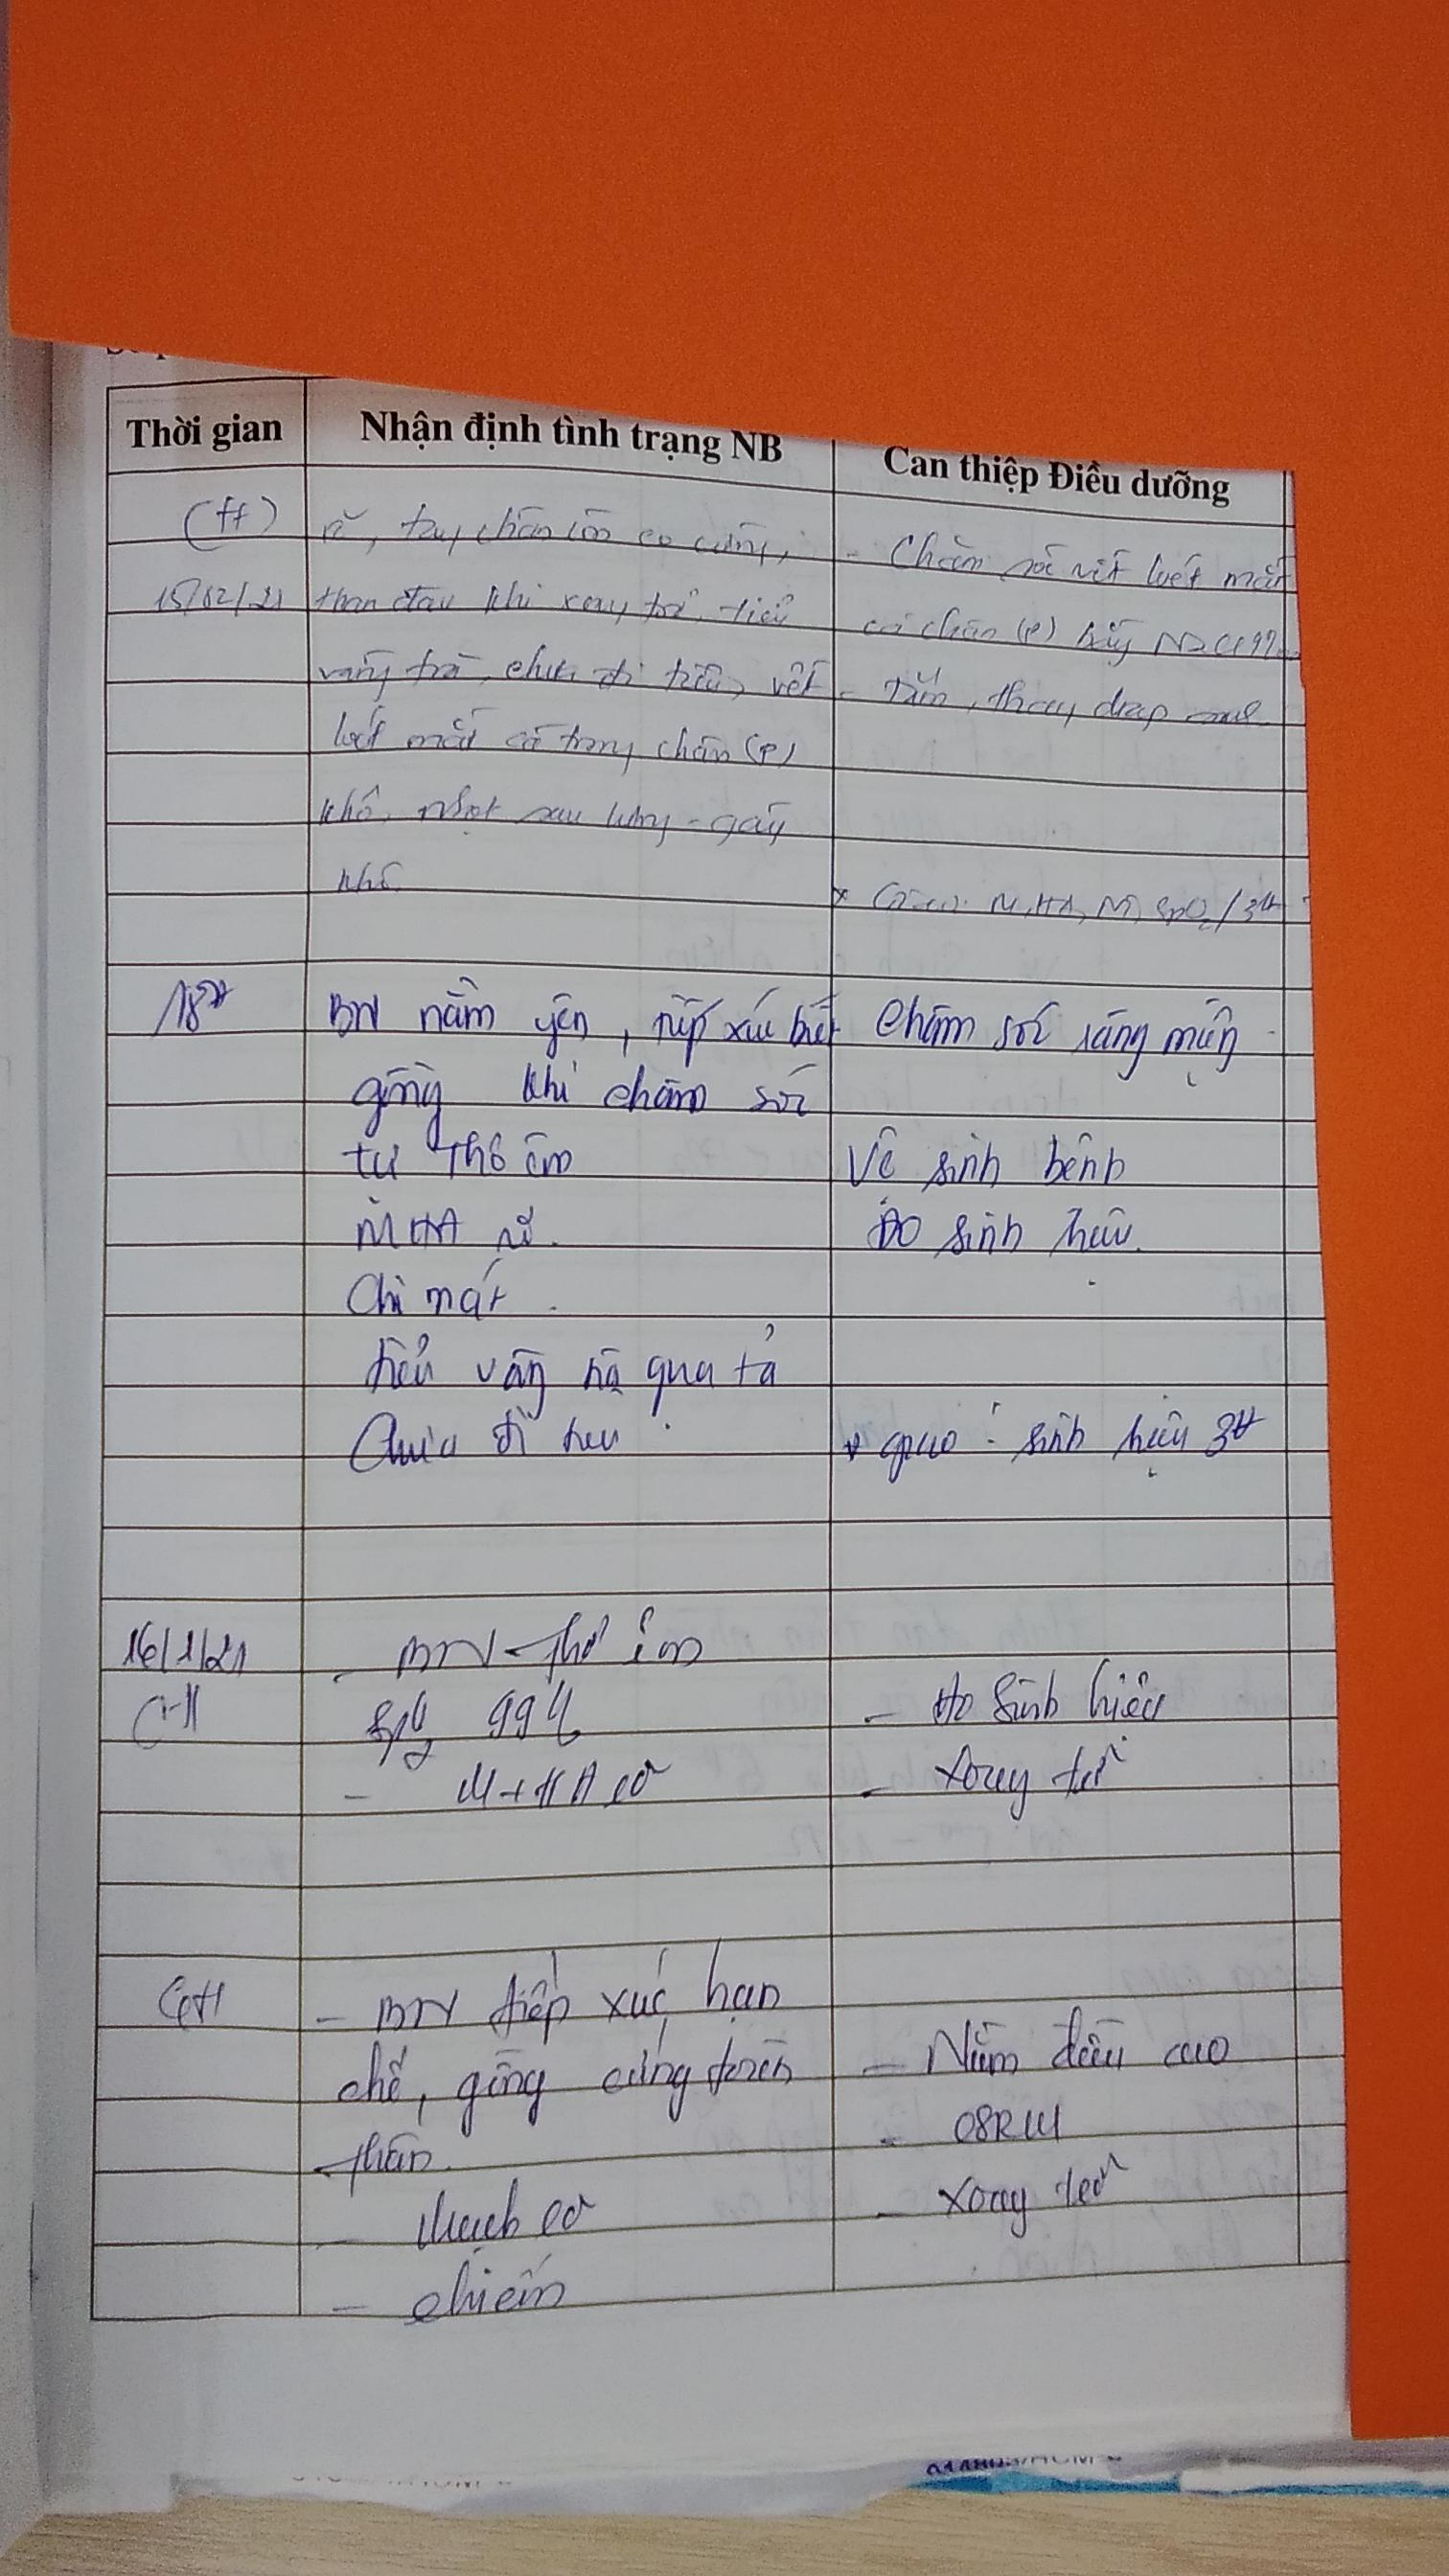 Thời gian
Nhận định tình trạng NB
Can thiệp Điều dưỡng
(tt)
15/02/21
, tay chân còn co cứng,
than đau khi xoay trở, tiểu
vàng trà, chưa đi tiêu, vết
loét mắt cá trong chân (P)
khô, nhọt sau lưng - gáy
khô
- Chăm sóc vết loét mắt
cá chân (P) bằng
- Tắm, thay drap
M, HA, SpO2/3H
18H
BN nằm yên, tiếp xúc biết
gồng khi chăm sóc
tự thở êm
M HA
Chi mát
tiểu vàng qua tả
Chưa đi tiêu
Chăm sóc răng miệng
Vệ sinh bệnh
Đo sinh hiệu.
sinh hiệu 3H
16/1/21
- BN thở êm
SpO2 99%
- M + HA
- Đo sinh hiệu
- Xoay trở
- BN tiếp xúc hạn
chế, gồng cứng toàn
thân.
- Mạch
-
- Nằm đầu cao
- CSRM
- Xoay trở